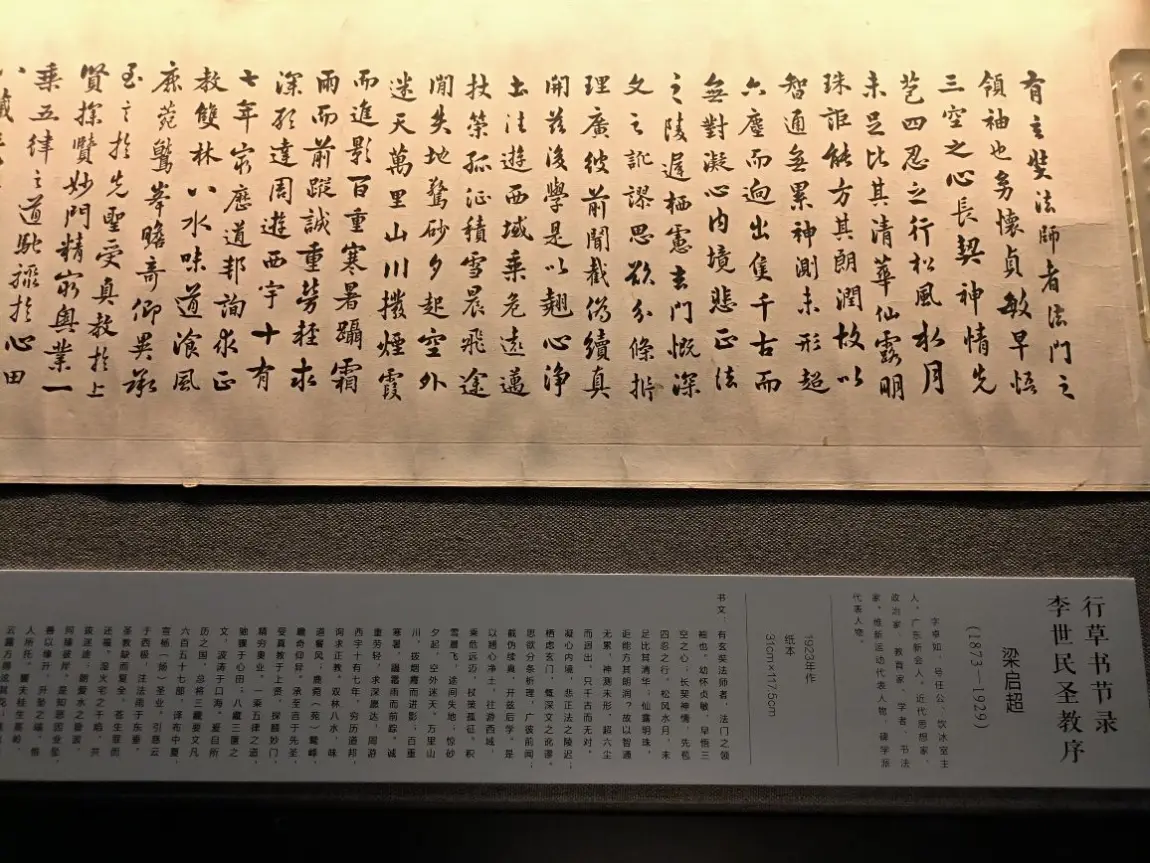 有玄奘法師者法門之
領袖也幼懷貞敏早悟
三空之心長契神情先
苞四忍之行松風水月
未足比其清華仙露明
珠詎能方其朗潤故以
智通無累神測未形超
六塵而迥出隻千古而
無對凝心内境悲正法
之陵遲栖慮玄門慨深
文之訛謬思欲分條析
理廣彼前聞截偽續真
開茲後學是以翹心淨
土法遊西域乘危遠邁
杖策孤征積雪晨飛途
閒失地驚砂夕起空外
迷天萬里山川撥煙霞
而進影百重寒暑躡霜
雨而前蹤誠重勞輕求
深願達周遊西宇十有
七年窮歷道邦詢求正
教雙林八水味道湌風
鹿菀鷲峯瞻奇仰異承
至言於先聖受真教於上
賢探賾妙門精窮奧業一
乘五律之道馳驟於心田
八藏
行草书节录
李世民圣教序
梁启超
(1873—1929)
字卓如，号任公、饮冰室主
人，广东新会人。近代思想家、
政治家、教育家、学者、书法
家，维新运动代表人物，碑学派
代表人物。
1923年作
纸本
31cm×117.5cm
书文：有玄奘法师者，法门之领
袖也。幼怀贞敏，早悟三
空之心；长契神情，先苞
四忍之行。松风水月，未
足比其清华；仙露明珠，
讵能方其朗润？故以智通
无累，神测未形，超六尘
而迥出，只千古而无对。
凝心内境，悲正法之陵迟；
栖虑玄门，慨深文之讹谬。
思欲分条析理，广彼前闻；
截伪续真，开兹后学。是
以翘心净土，往游西域。
乘危远迈，杖策孤征。积
雪晨飞，途间失地；惊砂
夕起，空外迷天。万里山
川，拨烟霞而进影；百重
寒暑，蹑霜雨而前踪。诚
重劳轻，求深愿达，周游
西宇十有七年，穷历道邦，
询求正教。双林八水，味
道餐风，鹿菀（苑）鹫峰，
瞻奇仰异。承至言于先圣，
受真教于上贤，探赜妙门，
精穷奥业。一乘五律之道，
驰骤于心田；八藏三箧之
文，波涛于口海。爰自所
历之国，总将三藏要文凡
六百五十七部，译布中夏，
宣杨（扬）圣业。引慈云
于西极，注法雨于东垂。
圣教缺而复全，苍生罪而
还福。湿火宅之干焰，共
拔迷途；朗爱水之昏波，
同臻彼岸。是知恶因业坠，
善以缘升，升坠之端，惟
人所托。譬夫桂生高岭，
云露方得泫其花；